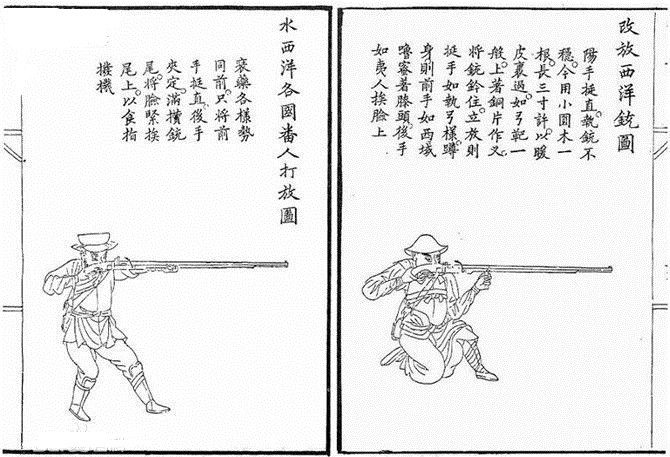 改放西洋銃圖
陽手挺直。執銃不
穩。今用小圓木一
根。長三寸許。以暖
皮裹過。如弓靶一
般。上著銅片作叉。
將銃鈐住。立放則
挺手如執弓樣。蹲
身則前手如西域
嚕密著膝頭。後手
如夷人挨臉上
水西洋各國畨人打放圖
裝藥各樣勢
同前。只將前
手挺直。後手
夾定滿攅銃
尾。將臉緊挨
尾上。以食指
撥機